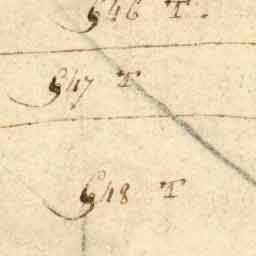 646 T.
647 T
648 T